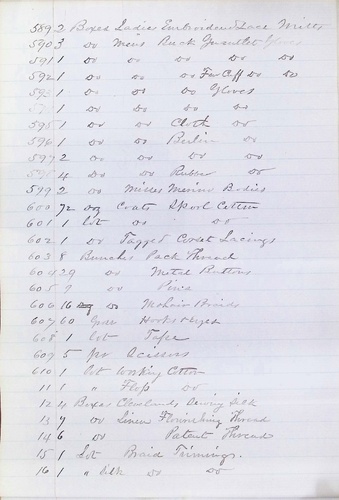 589 2 Boxes Ladies Embroidered & Lace Mitts
590 3 do Mens Buck Gauntlet Gloves
591 1 do do do do do
592 1 do do do Fur Cuff do do
593 1 do do do Gloves
1 do do do do
595 1 do do Cloth do
596 1 do do Berlin do
597 2 do do do do
598 4 do do Rubber do
599 2 do Misses Merino Bodies
600 72 doz Coats Spool Cotton
601 1 lot do do
602 1 do Tagged Corset Lacings
603 8 Bunches Pack Thread
604 29 do Metal Buttons
605 9 do Pins
606 16 do Mohair Braids
607 60 Gross Hooks & eyes
608 1 lot Tape
609 5 pr Scissors
610 1 lot Working Cotton
11 1 " Floss do
12 4 Boxes Clevelands Sewing Silk
13 7 do Linen Flourishing Thread
14 6 do Patent Thread
15 1 Lot Braid Trimings.
16 1 " Silk do do